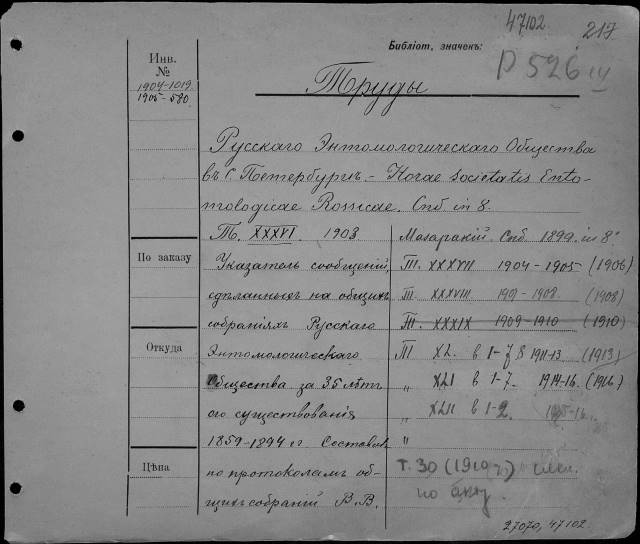 47102. 217
Инв. №
Библіот, значекъ:
1904-1019
1905-580
P 526 IV
Труды
Русскаго Энтомологическаго Общества
въ С. Петербургѣ. - Horae Societatis Ento-
mologicae Rossicae. Спб in 8.
Т. XXXVI 1903
Мазаракій Спб. 1899. in 8º
По заказу
Указатель сообщеній,
Т. XXXVII 1904-1905 (1906)
сдѣланныхъ на общихъ
Т. XXXVIII 1907-1908. (1908)
собраніяхъ Русскаго
Т. XXXIX 1909-1910 (1910)
Откуда
Энтомологическаго
Т XL. в 1-7, 8 1911-13. (1913)
Общества за 35 лѣтъ
„ XLI в 1-7. 1914-16. (1916)
его существованія
„ XLII в 1-2.
1859-1894 г. Составилъ
„
Цѣна
по протоколамъ об-
т. 30 (1910 г.)
щихъ собраній В. В.
по акту.
27070, 47102.